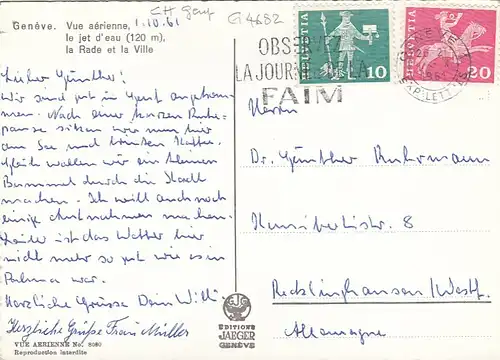 Genève. Vue aérienne,
le jet d'eau (120 m),
la Rade et la Ville
1.10.61
CH Genf
G 4682
OBSERVEZ
LA JOURNÉE DE LA
FAIM
HELVETIA
10
HELVETIA
20
GENEVE
Lieber Günther!
Wir sind gut in Genf angekom-
men. Nach einer kurzen Ruhe-
pause sitzen wir nun hier
am See und trinken Kaffee.
Gleich wollen wir ein kleinen
Bummel durch die Stadt
machen. Ich will auch noch
einige Aufnahmen machen.
Leider ist das Wetter hier
nicht mehr so gut wie es in
Palma war.
Herzliche Grüsse Dein Willi
Herzliche Grüße Frau Müller
Herrn
Dr. Günther Ruhrmann
Kunibertistr. 8
Recklinghausen/Westf.
Allemagne
EDITIONS
JAEGER
GENÈVE
VUE AERIENNE No. 8080
Reproduction interdite